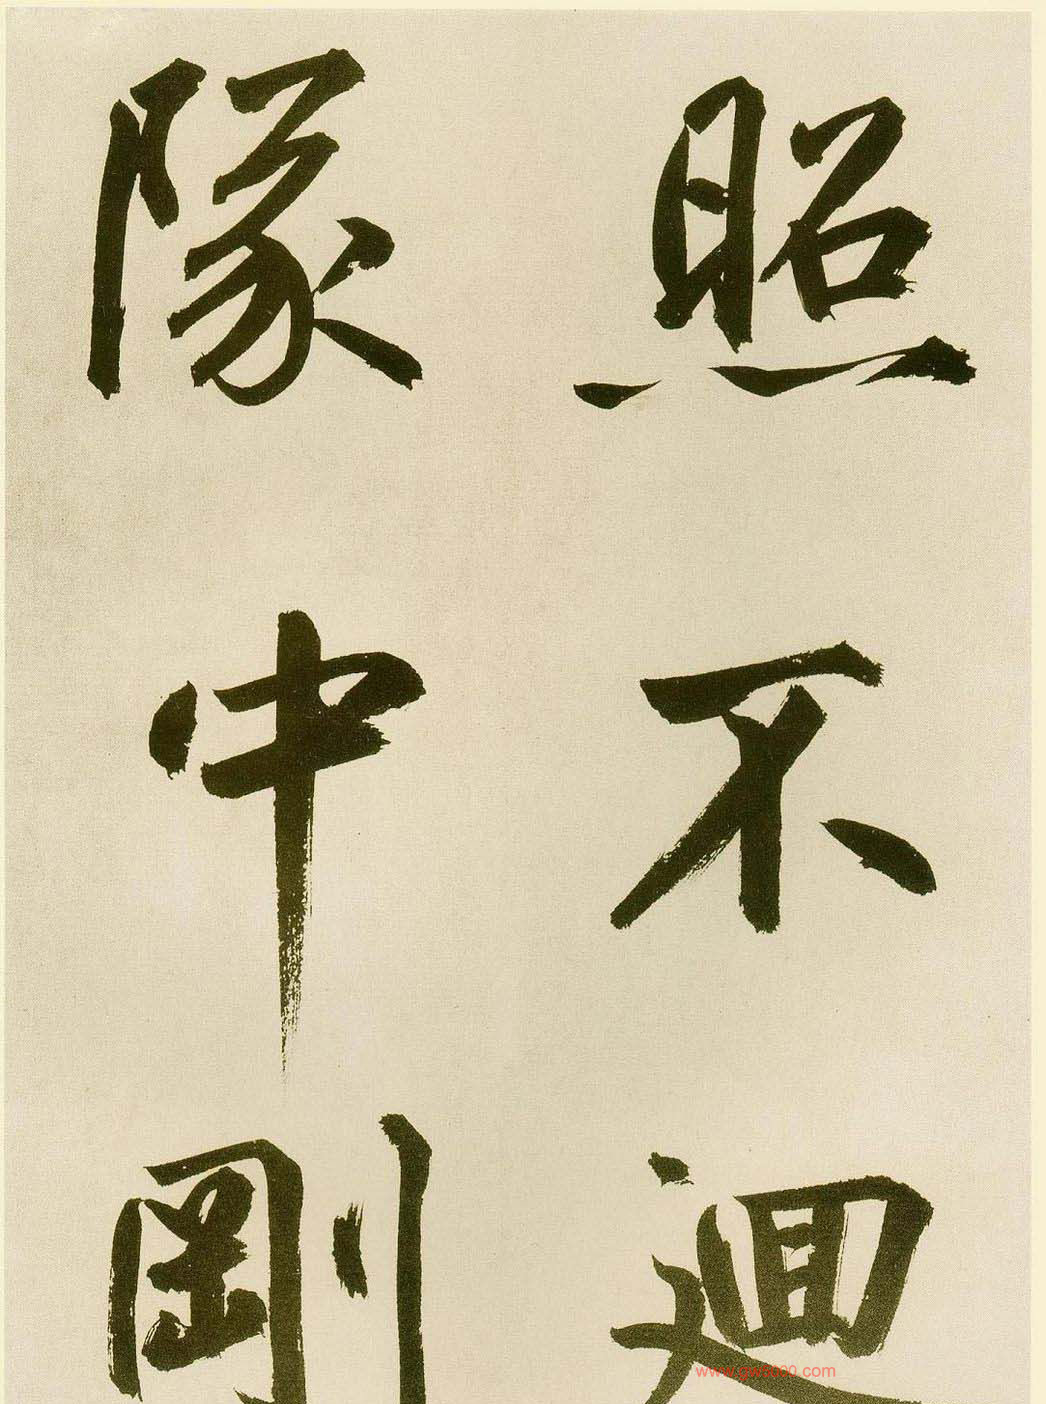 照不迴
隊中剛
www.gw3000.com